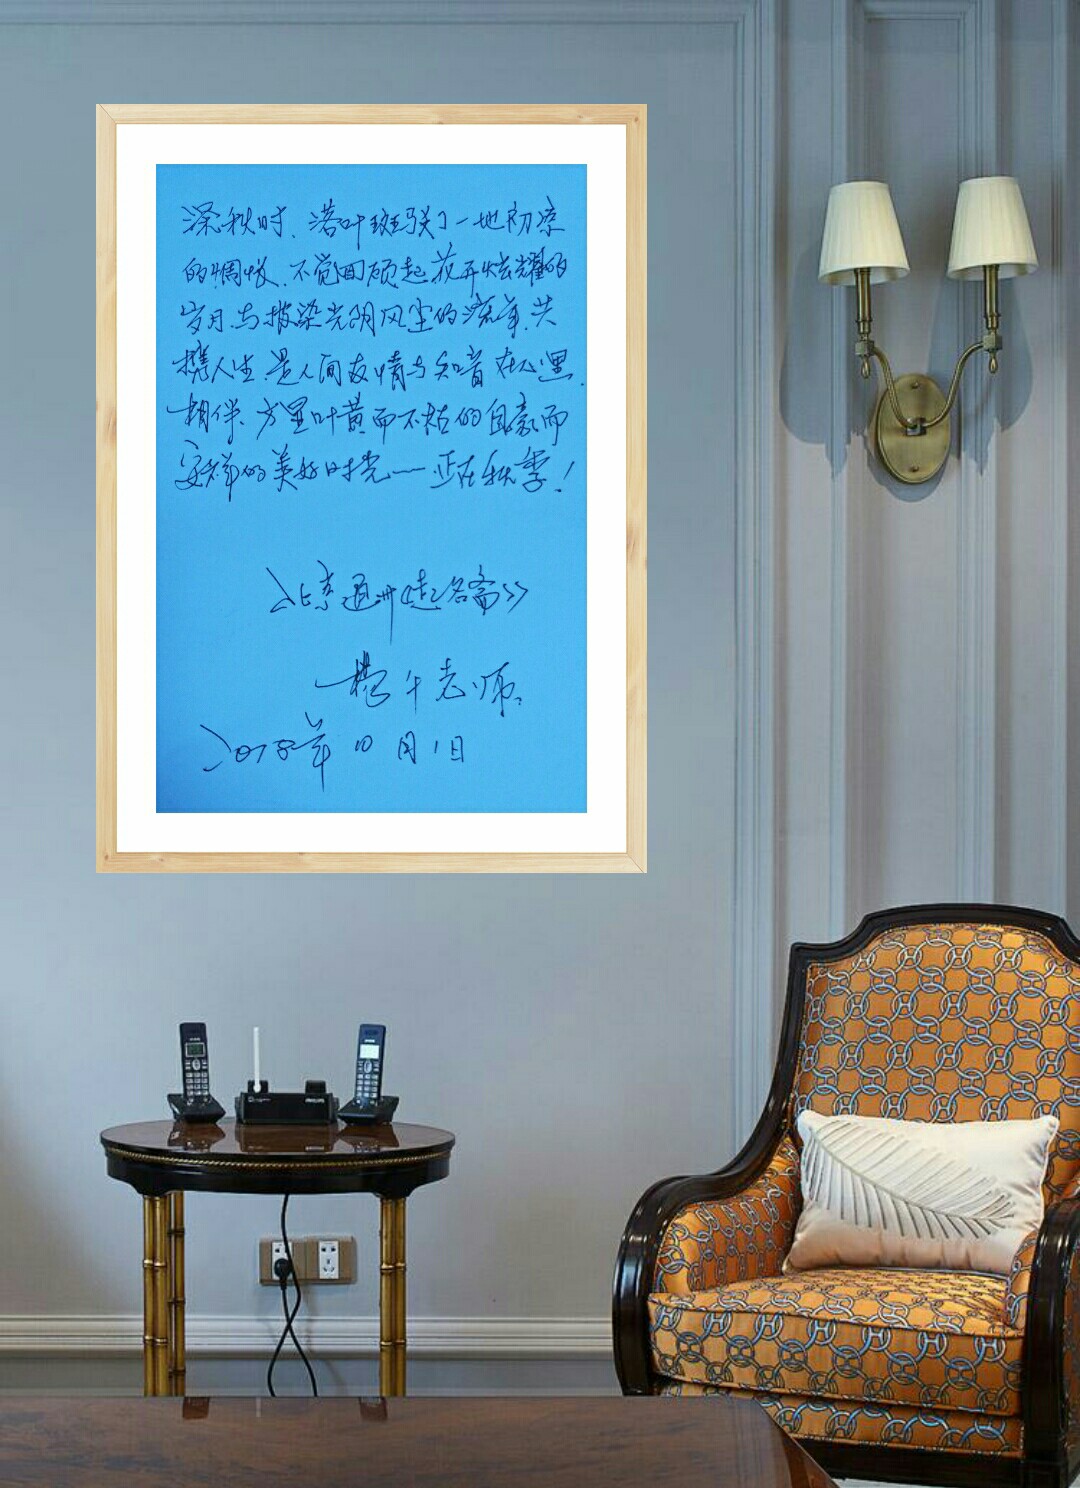 深秋时、落叶斑驳了一地初凉
的惆怅、不觉回顾起花开炫耀的
岁月、与披染光阴风尘的流年、共
携人生、是人间友情与知音在心里、
相伴、方显叶黄而不枯的自豪而
安祥的美好时光——正在秋季！
北京通州《起名斋》
老师、
2018年10月1日